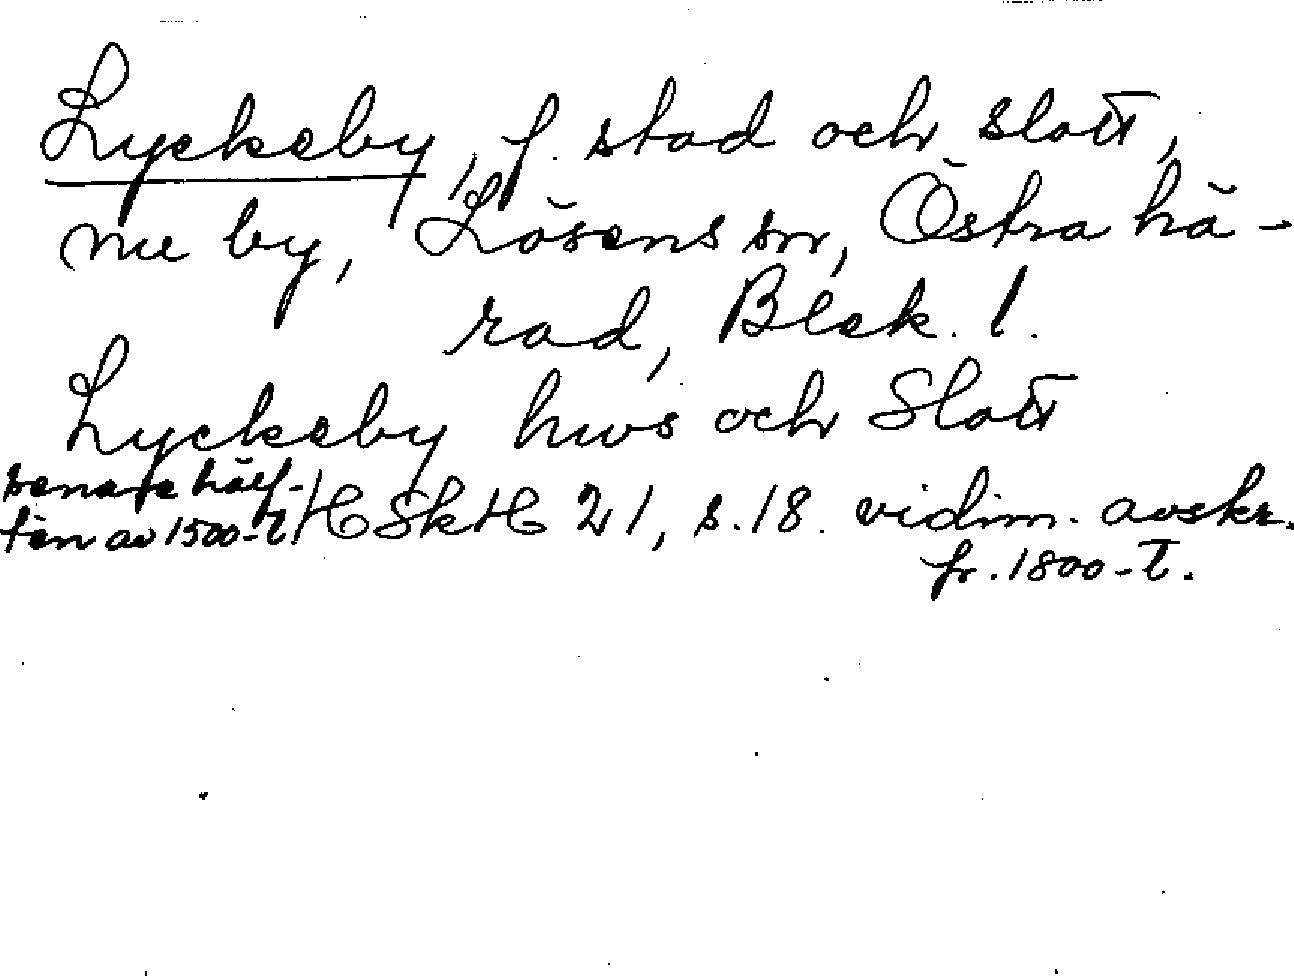 Lyckeby, f. stad och slott,
nu by, Lösens sn, Östra hä-
rad, Blek. l.
Lyckeby hws och Slott
senare hälf-
ten av 1500-t. HSkH 21, s. 18. vidim. avskr.
fr. 1800-t.